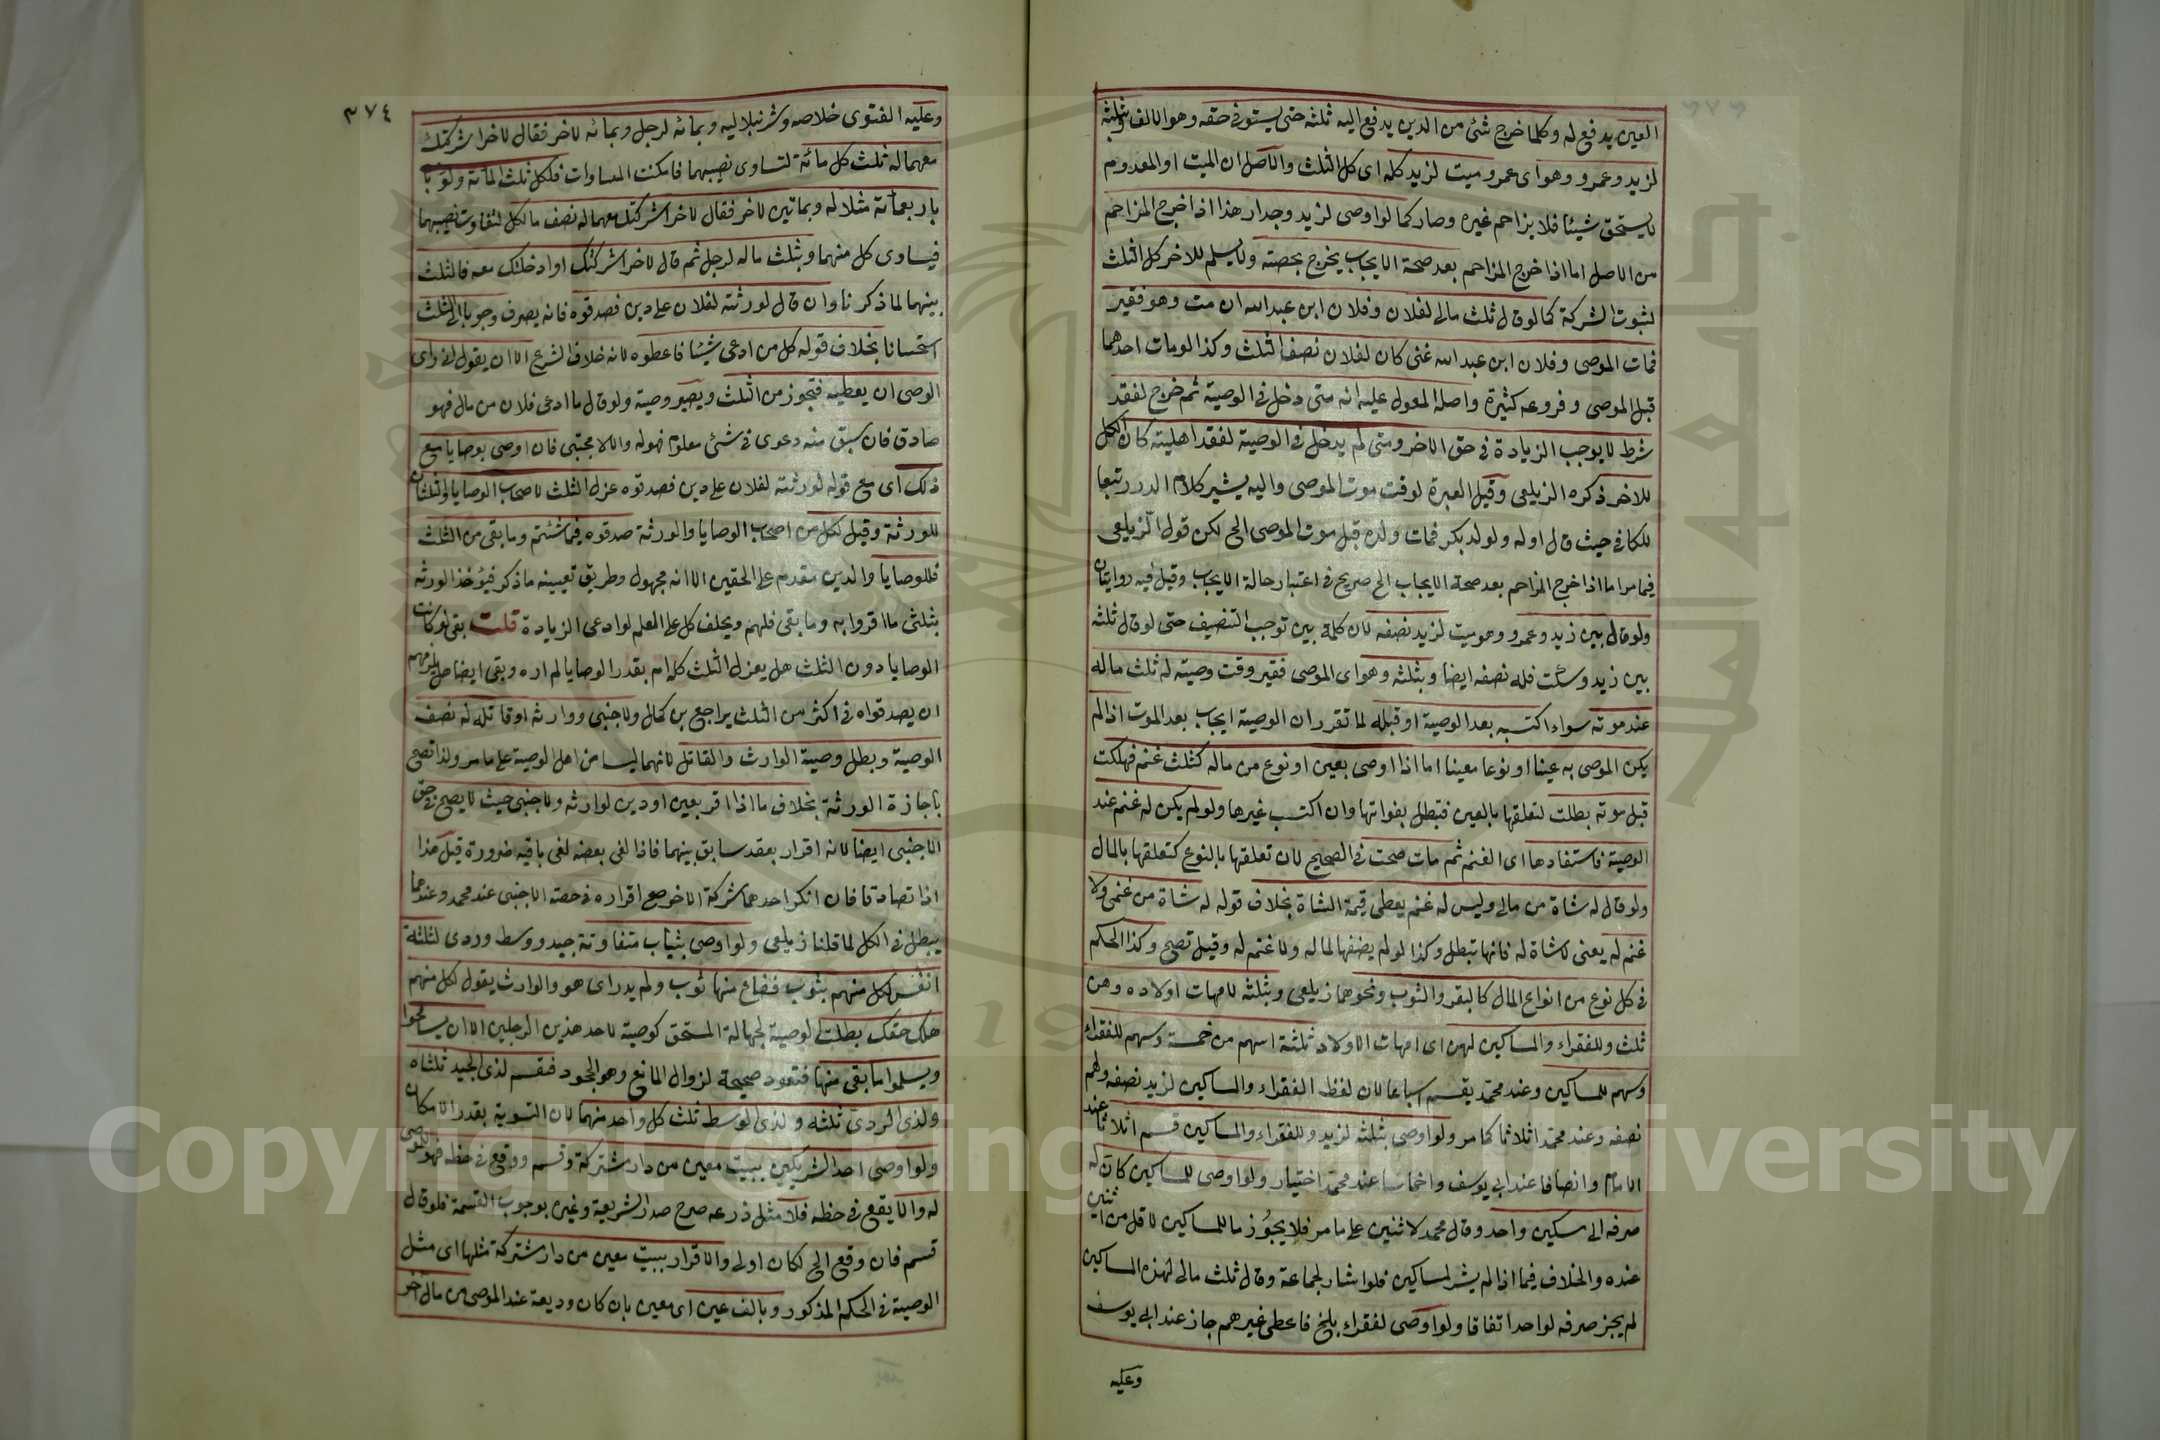 العين يدفع له وكلما خرج شئ من الدين يدفع اليه ثلثه حتى يستوفى حقه وهو الالف وبثلثه
لزيد وعمرو وهو اى عمرو ميت لزيد كله اى كل الثلث والاصل ان الميت او المعدوم
لايستحق شيئا فلا يزاحم غيره وصار كما لو اوصى لزيد وجدار هذا اذا خرج المزاحم
من الاصل اما اذا خرج المزاحم بعد صحة الايجاب يخرج بحصته ولايسلم للاخر كل الثلث
لثبوت الشركة كما لو قال ثلث مالى لفلان وفلان ابن عبد الله ان مت وهو فقير
فمات الموصى وفلان ابن عبد الله غنى كان لفلان نصف الثلث وكذا لو مات احدهما
قبل الموصى وفروعه كثيرة واصله المعول عليه انه متى دخل فى الوصية ثم خرج لفقد
شرط لايوجب الزيادة فى حق الاخر ومتى لم يدخل فى الوصية لفقد اهليته كان الكل
للاخر ذكره الزيلعى وقيل العبرة لوقت موت الموصى واليه يشير كلام الدرر تبعا
للكافى حيث قال اوله ولولد بكر فمات ولده قبل موت الموصى الخ لكن قول الزيلعى
فيما مر اما اذا خرج المزاحم بعد صحة الايجاب الخ صريح فى اعتبار حالة الايجاب وقيل فيه روايتان
ولو قال بين زيد وعمرو وهو ميت لزيد نصفه لان كلمة بين توجب التنصيف حتى لو قال ثلثه
بين زيد وسكت فله نصفه ايضا وبثلثه وهو اى الموصى فقير وقت وصيته له ثلث ماله
عند موته سواء اكتسبه بعد الوصية او قبله لما تقرر ان الوصية ايجاب بعد الموت اذا لم
يكن الموصى به عينا او نوعا معينا اما اذا اوصى بعين او نوع من ماله كثلث غنم فهلكت
قبل موته بطلت لتعلقها بالعين فتبطل بفواتها وان اكتسب غيرها ولو لم يكن له غنم عند
الوصية فاستفادها اى الغنم ثم مات صحت فى الصحيح لان تعلقها بالنوع كتعلقها بالمال
ولو قال له شاة من مالى وليس له غنم يعطى قيمة الشاة بخلاف قوله له شاة من غنمى ولا
غنم له يعنى لاشاة له فانها تبطل وكذا لو لم يضفها لماله ولاغنم له وقيل تصح وكذا الحكم
فى كل نوع من انواع المال كالبقر والثوب ونحوهما زيلعى وبثلثه لامهات اولاده وهن
ثلث وللفقراء والمساكين لهن اى امهات الاولاد ثلثة اسهم من خمسة وسهم للفقراء
وسهم للمساكين وعند محمد يقسم اسباعا لان لفظ الفقراء والمساكين لزيد نصفه ولهم
نصفه وعند محمد اثلاثا كما مر ولو اوصى بثلثه لزيد وللفقراء والمساكين قسم اثلاثا عند
الامام وانصافا عند ابى يوسف واخماسا عند محمد اختيار ولو اوصى للمساكين كان له
صرفه الى مسكين واحد وقال محمد لاثنين على ما مر فلا يجوز ما للمساكين لاقل من اثنين
عنده والخلاف فيما اذا لم يشر لمساكين فلو اشار لجماعة وقال ثلث مالى لهذه المساكين
لم يجز صرفه لواحد اتفاقا ولو اوصى لفقراء بلخ فاعطى غيرهم جاز عند ابى يوسف
وعليه
٣٧٤
وعليه الفتوى خلاصه وشرنبلاليه وبمائه لرجل وبمائه لاخر فقال لاخر اشركتك
معهما له ثلث كل مائة لتساوى نصيبهما فامكنت المساوات فلكل ثلث المائة ولو با
باربعمائة مثلا له وبماتين لاخر فقال لاخر اشركتك معهما له نصف ما لكل لتفاوت نصيبهما
فيساوى كل منهما وبثلث ماله لرجل ثم قال لاخر اشركتك او ادخلتك معه فالثلث
بينهما لما ذكرنا وان قال لورثته لفلان على دين فصدقوه فانه يصرف وجوبا الى الثلث
استحسانا بخلاف قوله كل من ادعى شيئا فاعطوه لانه خلاف الشرع الا ان يقول ان راى
الوصى ان يعطيه فتجوز من الثلث ويصير وصية ولو قال ما ادعى فلان من مالى فهو
صادق فان سبق منه دعوى فى شئ معلوم فهو له والا لا مجتبى فان اوصى بوصايا مع
ذلك اى مع قوله لورثته لفلان على دين فصدقوه عزل الثلث لاصحاب الوصايا والثلثان
للورثة وقيل لكل من اصحاب الوصايا والورثة صدقوه فيما شئتم وما بقى من الثلث
فللوصايا والدين مقدم على الحقين الا انه مجهول وطريق تعيينه ما ذكر فيؤخذ الورثه
بثلثى ما اقروا به وما بقى فلهم ويحلف كل على العلم لو ادعى الزيادة قلت بقى لو كانت
الوصايا دون الثلث هل يعزل الثلث كله ام بقدر الوصايا لم اره وبقى ايضا هل يلزمهم
ان يصدقواه فى اكثر من الثلث يراجع بن كمال ولاجنبى ووارثه او قاتله له نصف
الوصية وبطل وصية الوارث والقاتل لانهما ليسا من اهل الوصية على ما مر ولذا تصح
باجازة الورثة بخلاف ما اذا اقر بعين او دين لوارثه ولاجنبى حيث لايصح فى حق
الاجنبى ايضا لانه اقرار بعقد سابق بينهما فاذا لغى بعضه لغى باقيه ضرورة قيل هذا
اذا تصادقا فان انكر احدهما شركة الاخر صح اقراره فى حصته الاجنبى عند محمد وعندهما
يبطل فى الكل لما قلنا زيلعى ولو اوصى بثياب متفاوتة جيد ووسط وردى لثلثة
انفس لكل منهم بثوب فضاع منها ثوب ولم يدر اى هو والوارث يقول لكل منهم
هلك حقك بطلت الوصية لجهالة المستحق كوصية لاحد هذين الرجلين الا ان يسامحوا
ويسلموا ما بقى منها فتعود صحيحة لزوال المانع وهو الجحود فتقسم لذى الجيد ثلثاه
ولذى الردى ثلثه ولذى الوسط ثلث كل واحد منهما لان التسوية بقدر الامكان
ولو اوصى احد الشريكين ببيت معين من دار مشتركة وقسم ووقع فى حظه فهو للموصى
له والا يقع فى حظه فلا مثل ذرعه صرح صدر الشريعة وغيره بوجوب القسمة فلو قال
قسم فان وقع الخ لكان اولى والاقرار ببيت معين من دار مشتركة مثلها اى مثل
الوصية فى الحكم المذكور وبالف عين اى معين بان كان وديعة عند الموصى من مال آخر
Copyright © King Saud University